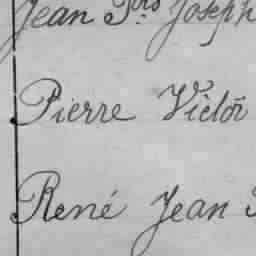 Jean Prs Joseph
Pierre Victor
René Jean